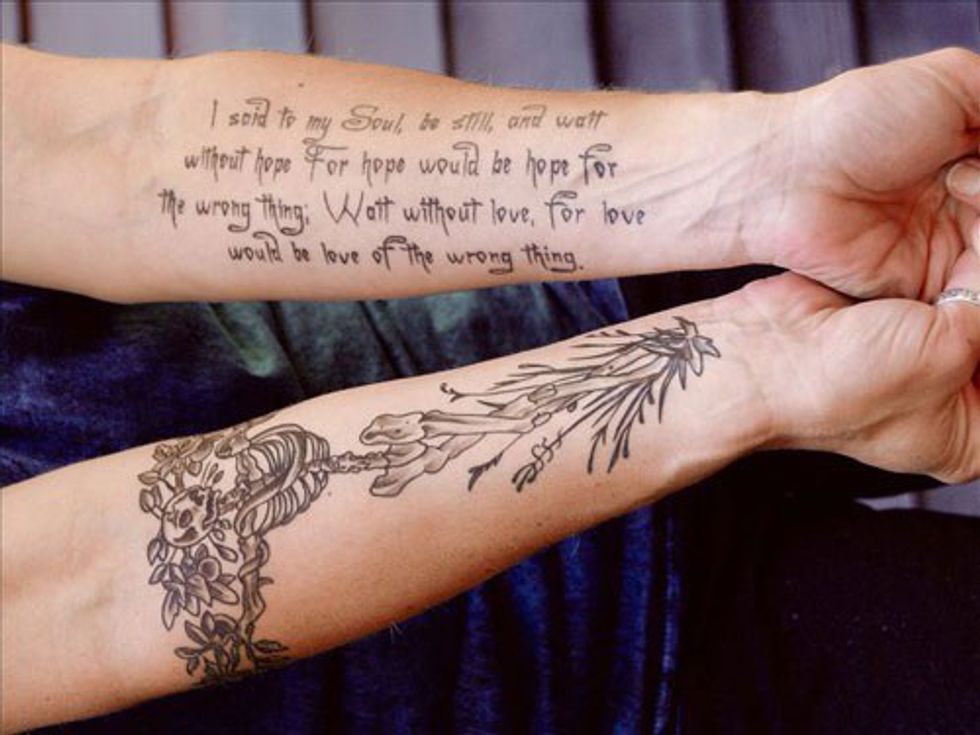 I said to my Soul, be still, and wait
without hope For hope would be hope for
the wrong thing; Wait without love, for love
would be love of the wrong thing.